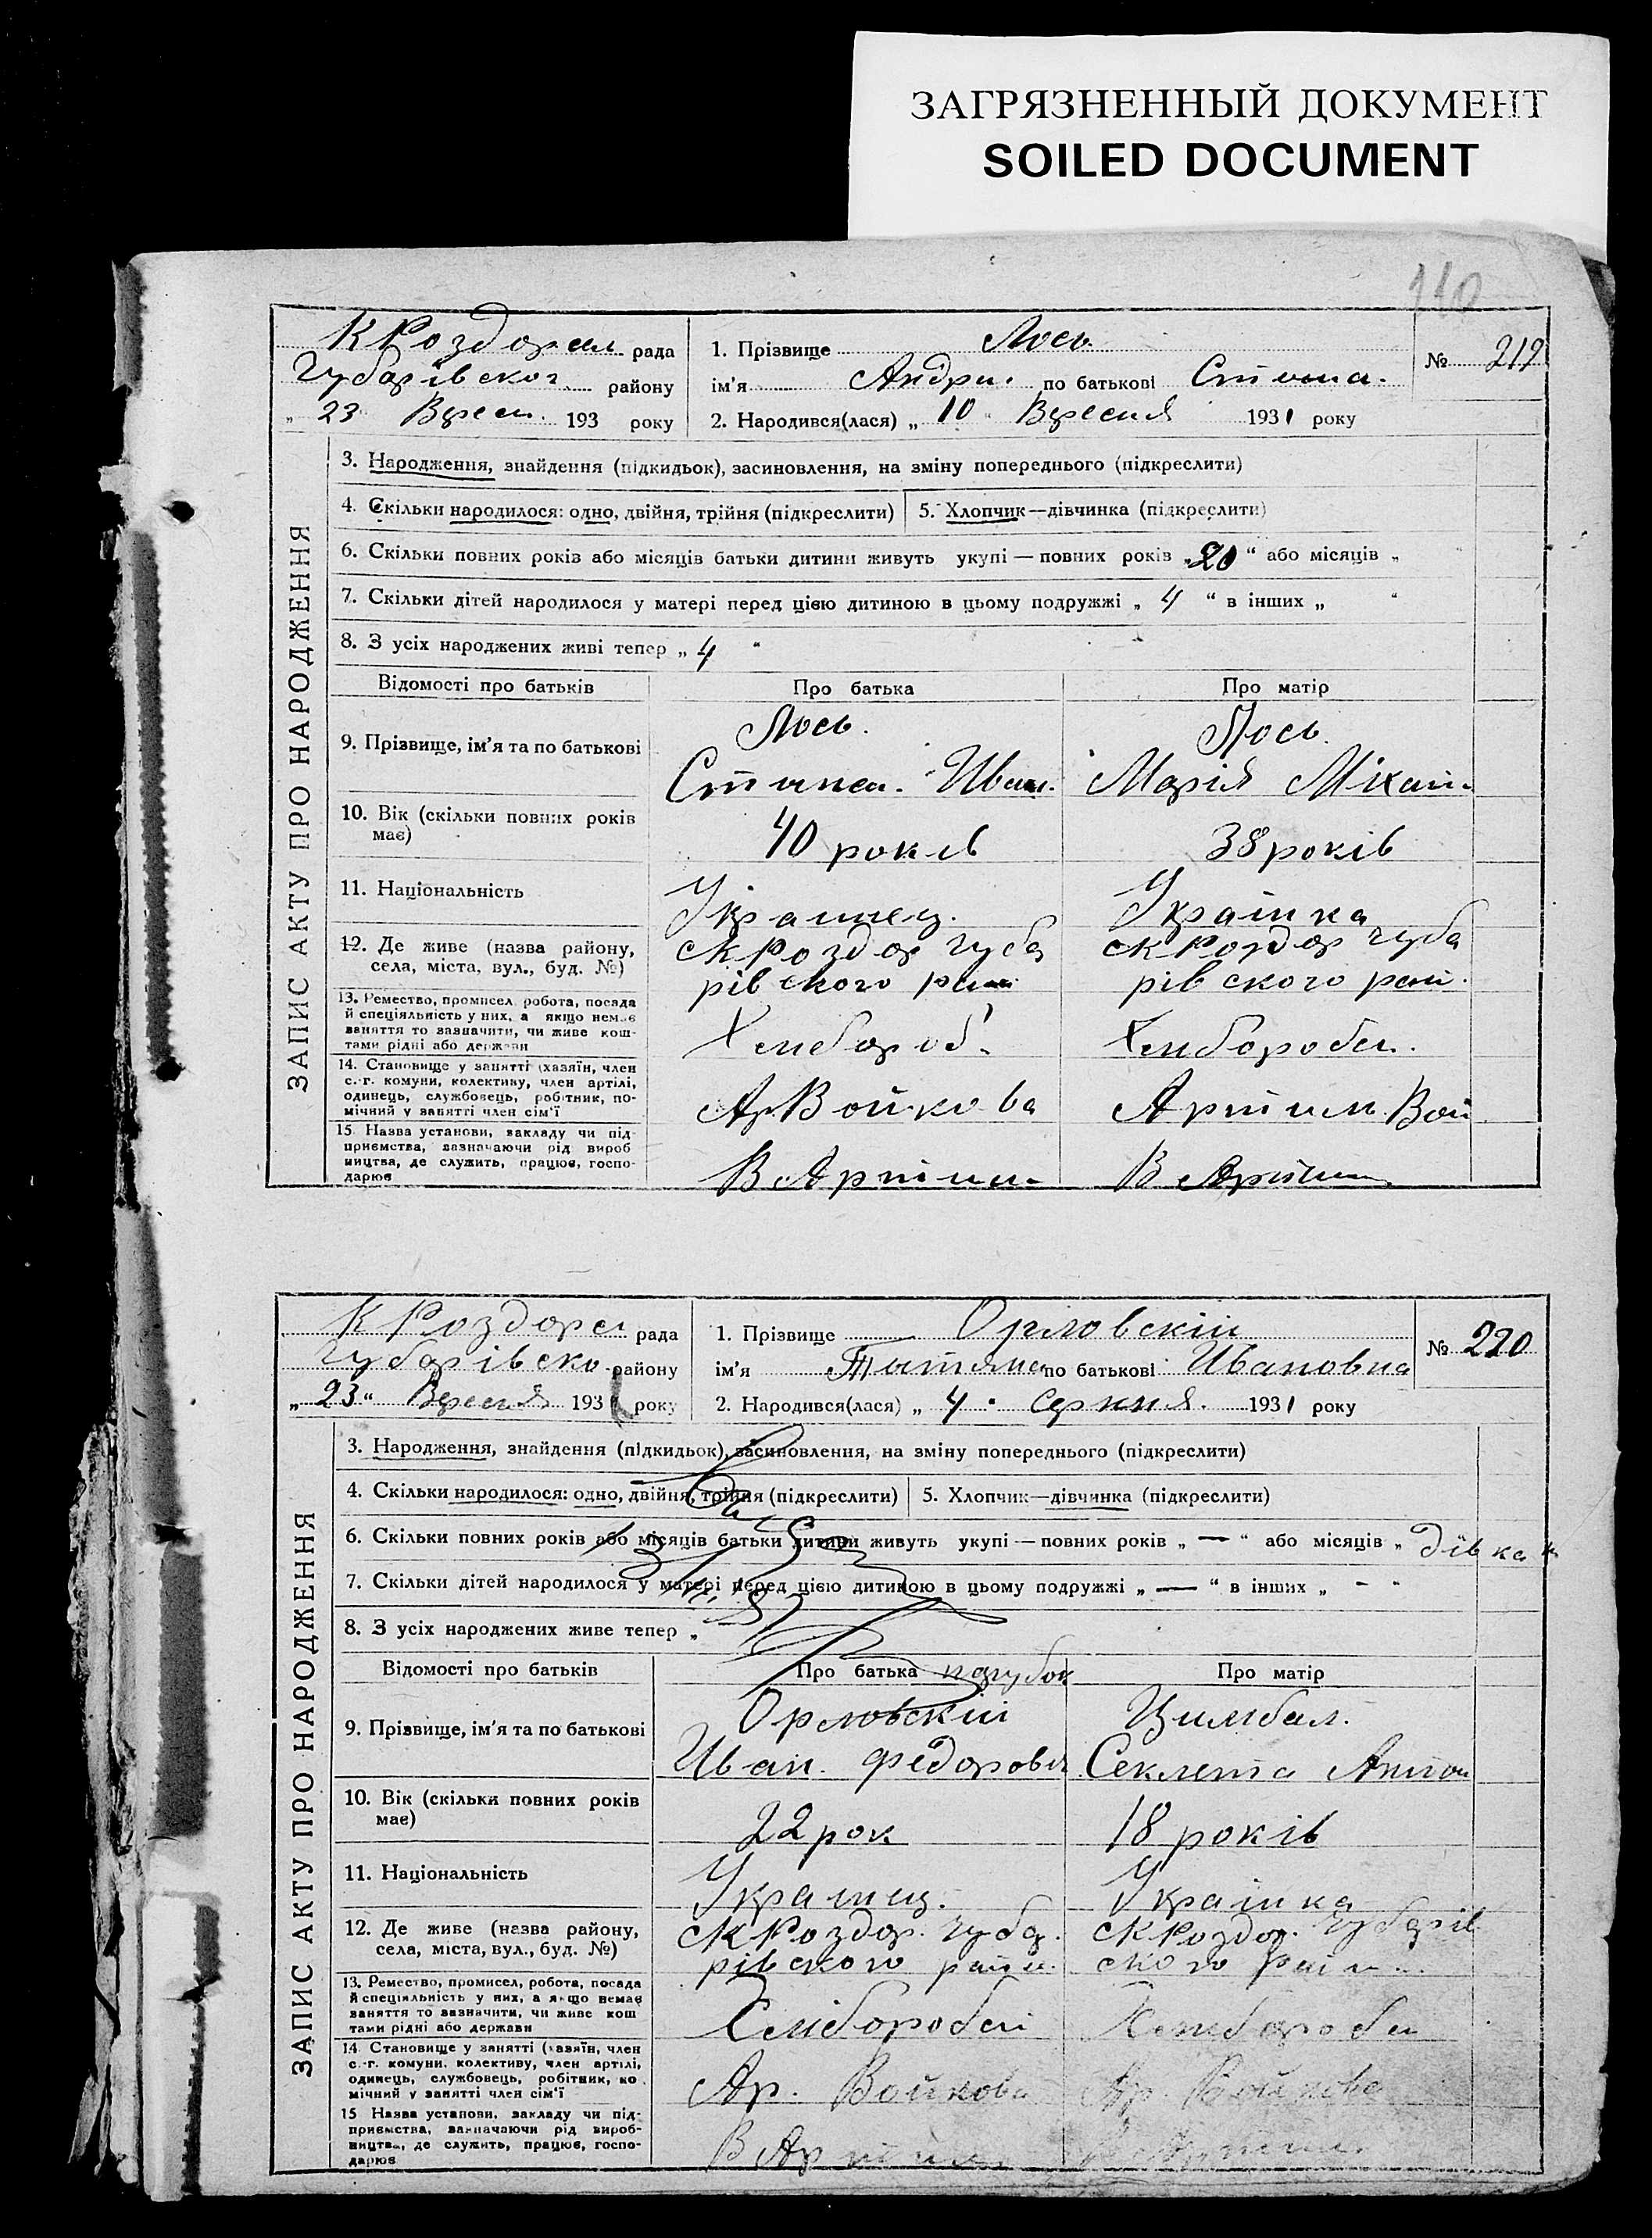 ЗАГРЯЗНЕННЫЙ ДОКУМЕНТ
SOILED DOCUMENT
110
ЗАПИС АКТУ ПРО НАРОДЖЕННЯ
К Роздорсел рада
Губарівског району
„ 23 Вересн. 193 року
1. Прізвище Лось
№ 219
ім'я Андри. по батькові
2. Народився(лася) „ 10 „ Вересня 1931 року
3. Народження, знайдення (підкидьок), засиновлення, на зміну попереднього (підкреслити)
4. Скільки народилося: одно, двійня, трійня (підкреслити) 5. Хлопчик—дівчинка (підкреслити)
6. Скільки повних років або місяців батьки дитини живуть укупі — повних років „20“ або місяців „ “
7. Скільки дітей народилося у матері перед цією дитиною в цьому подружжі „ 4 “ в інших „ “
8. З усіх народжених живі тепер „ 4 “
Відомості про батьків Про батька Про матір
9. Прізвище, ім'я та по батькові
Лось. Лось.
Иван. Марія Міхай.
10. Вік (скільки повних років має)
40 років 38 років
11. Національність
Украинец. Украінка
12. Де живе (назва району, села, міста, вул., буд. №)
с К Роздор Губа с К Роздор Губа
рівского рай рівского рай.
13. Ремество, промисел, робота, посада й спеціяльність у них, а якщо немає заняття то зазначити, чи живе коштами рідні або держави
Хлибороб. Хлибороби.
14. Становище у занятті (хазяїн, член с.-г. комуни, колективу, член артілі, одинець, службовець, робітник, помічний у занятті член сім'ї
Ар Войкова Артили Вой
15. Назва установи, закладу чи підприємства, зазначаючи рід виробництва, де служить, працює, господарює
В Артили В Артили
ЗАПИС АКТУ ПРО НАРОДЖЕННЯ
К Роздорсі рада
Губарівско району
„ 23 “ Вересня 193 року
1. Прізвище Орловскій
№ 220
ім'я Татяна по батькові Ивановна
2. Народився(лася) „ 4 „ серпня. 1931 року
3. Народження, знайдення (підкидьок), засиновлення, на зміну попереднього (підкреслити)
4. Скільки народилося: одно, двійня, трійня (підкреслити) 5. Хлопчик—дівчинка (підкреслити)
6. Скільки повних років або місяців батьки дитини живуть укупі — повних років „ — “ або місяців „ дівка
7. Скільки дітей народилося у матері перед цією дитиною в цьому подружжі „ — “ в інших „ - “
8. З усіх народжених живе тепер „
Відомості про батьків Про батька парубок Про матір
9. Прізвище, ім'я та по батькові
Орловскій Цимбал.
Иван. Федорович Секлета Антон
10. Вік (скільки повних років має)
22 рок 18 років
11. Національність
Украинец. Украінка
12. Де живе (назва району, села, міста, вул., буд. №)
с К Роздор. Губа с К Роздор. Губарів
рівского район. ского район.
13. Ремество, промисел, робота, посада й спеціяльність у них, а якщо немає заняття то зазначити, чи живе коштами рідні або держави
Хлібороби Хлибороби
14. Становище у занятті (хазяїн, член с.-г. комуни, колективу, член артілі, одинець, службовець, робітник, помічний у занятті член сім'ї
Ар. Войкова Ар. Войкова
15 Назва установи, закладу чи підприємства, зазначаючи рід виробництва, де служить, працює, господарює
В Артили В Артили